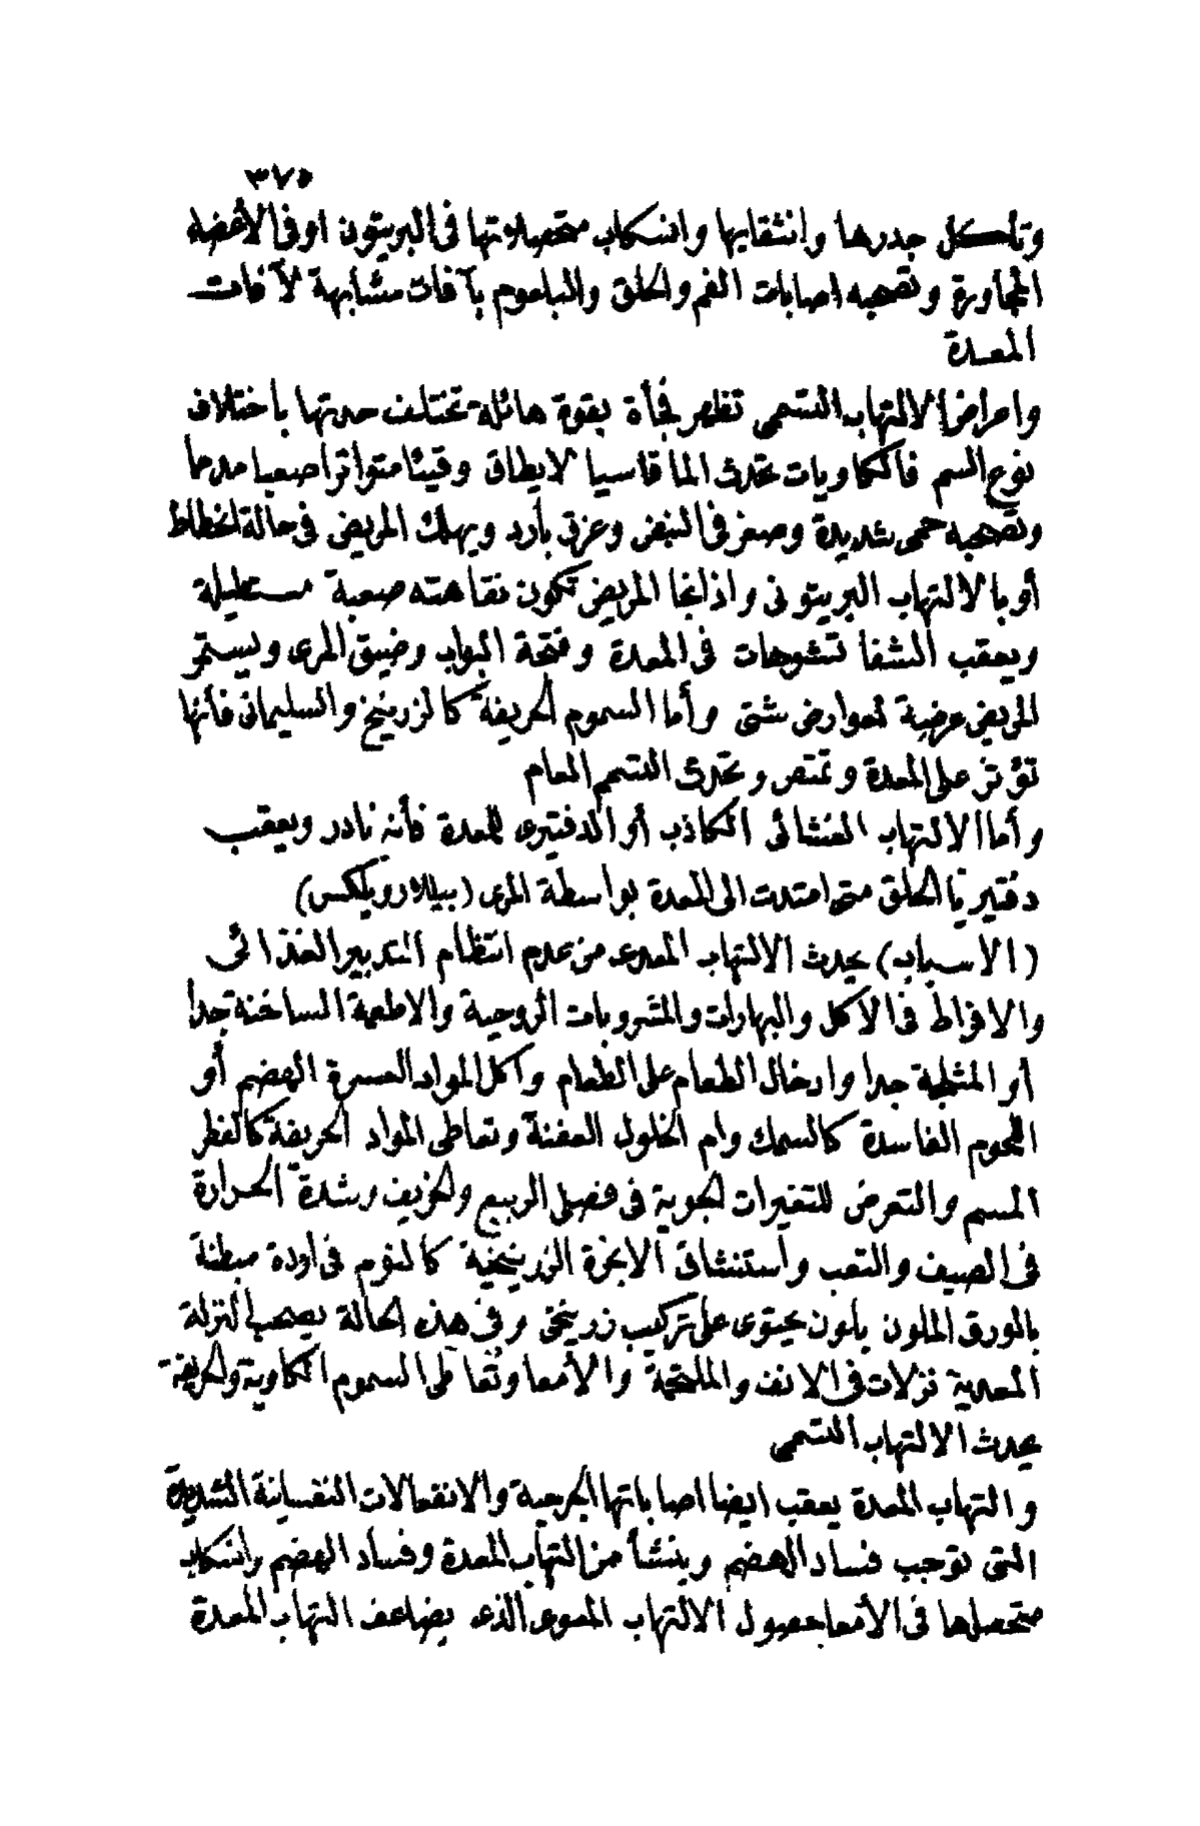 ٣٧٥
وتأكل جدرها وانثقابها وانسكاب متحصلاتها فى البريتون اوفى الأعضاء
المجاورة وتصحبه اصابات الفم والحلق والبلعوم بآفات مشابهة لآفات
المعدة
واعراض الالتهاب التسمى تظهر فجأة بقوة هائلة تختلف حدتها باختلاف
نوع السم فالكاويات تحدث الما قاسيا لايطاق وقيئا متواترا صعبا مدمما
وتصحبه حمى شديدة وصغر فى النبض وعرق بارد ويهلك المريض فى حالة انحطاط
أو بالالتهاب البريتونى واذا نجا المريض تكون نقاهته صعبة مستطيلة
ويعقب الشفا تشوهات فى المعدة وفتحة البواب وضيق المرى ويستمر
المريض عرضة لعوارض شتى وأما السموم الحريفة كالزرنيخ والسليمانى فأنها
تؤثر على المعدة وتمتص وتحدث التسمم العام
وأما الالتهاب الغشائى الكاذب أو الدفتيرى للمعدة فأنه نادر ويعقب
دفتيريا الحلق متى امتدت الى المعدة بواسطة المرى
(الأسباب) يحدث الالتهاب المعدى من عدم انتظام التدبير الغذائى
والافراط فى الاكل والبهارات والمشروبات الروحية والاطعمة الساخنة جدا
أو المثلجة جدا وادخال الطعام على الطعام واكل المواد العسرة الهضم أو
اللحوم الفاسدة كالسمك وام الخلول العفنة وتعاطى المواد الحريفة كالفطر
المسم والتعرض للتغيرات الجوية فى فصلى الربيع والخريف وشدة الحرارة
فى الصيف والتعب وأستنشاق الابخرة الزرنيخية كالنوم فى اودة مبطنة
بالورق الملون بلون يحتوى على تركيب زرنيخى وفى هذه الحالة يصحب النزلة
المعدية نزلات فى الانف والملتحمة والأمعا وتعاطى السموم الكاوية والحريفة
يحدث الالتهاب التسمى
والتهاب المعدة يعقب ايضا اصاباتها الجرحية والانفعالات النفسانية الشديدة
التى توجب فساد الهضم وينشأ من التهاب المعدة وفساد الهضم وانسكاب
متحصلها فى الأمعا حصول الالتهاب المعوى الذى يضاعف التهاب المعدة